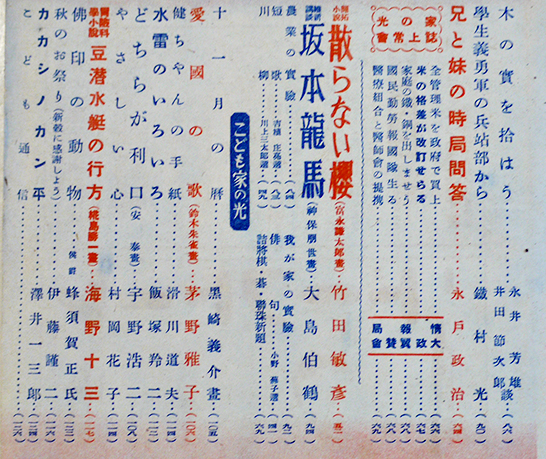 木の實を拾はう 永井芳雄談 井田節次郎 (六六)
學生義勇軍の兵站部から 鐵村光 (九〇)
兄と妹の時局問答 永戸政治 (六四)
家の光 誌上常會
全管理米を政府で買上
米の格差が改訂せらる
家庭の鐵・銅を出しませう
國民勤勞報國隊生る
醫療組合と醫師會の提携
情報局 大政翼贊會
開拓小說 散らない櫻 (富永謙太郎畫) 竹田敏彦 (五一)
維新講談 坂本龍馬 (神保朋世畫) 大島伯鶴 (九四)
農業の實驗 (八四)
我が家の實驗 (九二)
短歌 吉植庄亮選 (八三)
俳句 小野蕪子選 (四一)
川柳 川上三太郎選 (四九)
詰將棋・碁・聯珠新題 (六九)
こども家の光
十一月の曆 黑崎義介畫 (一〇五)
愛國の歌 (鈴木朱雀畫) 茅野雅子 (一〇六)
健ちやんの手紙 滑川道夫 (一二四)
水雷のいろいろ 飯塚羚二 (一二二)
どちらが利口 (安泰畫) 宇野浩二 (一〇八)
やさしい心 村岡花子 (一一四)
冒險科學小說 豆潜水艇の行方 (椛島勝一畫) 海野十三 (一一七)
佛印の動物 侯爵 蜂須賀正氏 (一三二)
秋のお祭り (新穀に感謝しよう) 伊藤謹二 (一二六)
カカシノカン平 澤井一三郎 (一三四)
こども通信 (一三六)